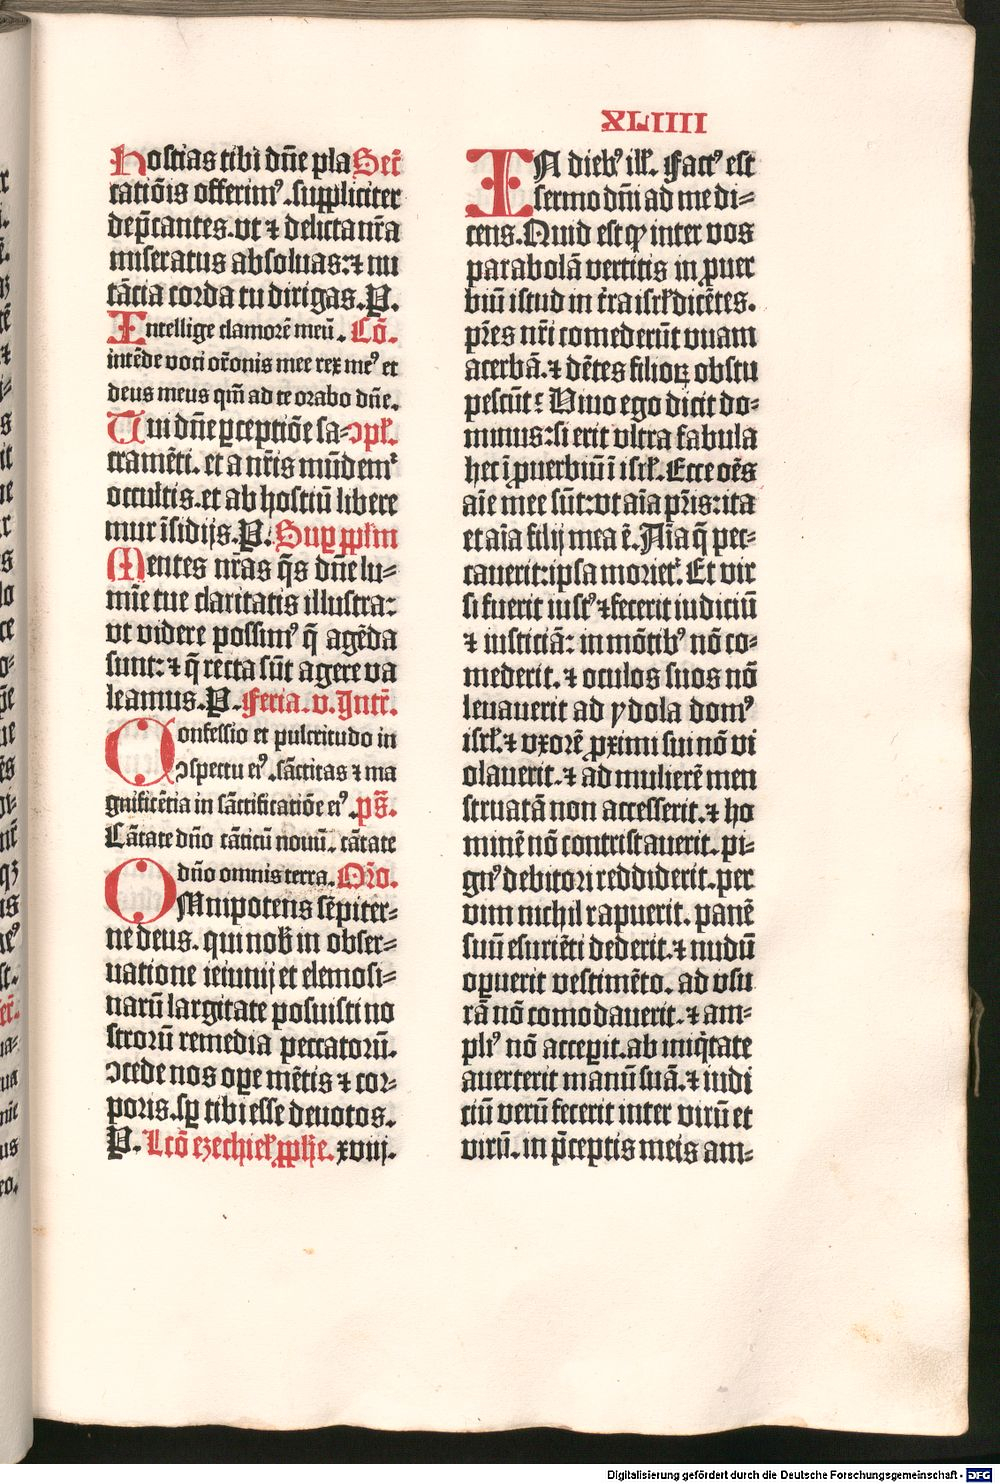 XLIIII
Hostias tibi dñe pla Secř
catiõis offerim⁹. suppliciter
dep̃cantes. vt ⁊ delicta nr̃a
miseratus absoluas: ⁊ nu
tãcia corda tu dirigas. P.
Intellige clamorẽ meũ. Cõ.
intẽde voci or̃onis mee rex me⁹ et
deus meus qm̃ ad te orabo dñe.
Tui dñe ꝑceptiõe sa- ↄpl̃.
cramẽti. et a nr̃is mũdemr̃
occultis. et ab hostiũ libere
mur ĩsidijs. P. Suꝑ ppl̃m
Mentes nr̃as q̃s dñe lu-
mĩe tue claritatis illustra:
vt videre possim⁹ q̃ agẽda
sunt: ⁊ q̃ recta sũt agere va
leamus. P. Feria. v. Intr̃.
Confessio et pulcritudo in
ↄspectu ei⁹. sãctitas ⁊ ma
gnificẽtia in sãctificatiõe ei⁹. ps̃.
Cãtate dño cãticũ nouũ. cãtate
dño omnis terra. Or̃o.
OMnipotens sẽpiter-
ne deus. qui nob̃ in obser-
uatione ieiunij et elemosi-
narũ largitate posuisti no
strorũ remedia peccatorũ.
ↄcede nos oꝑe mẽtis ⁊ cor-
poris. sꝑ tibi esse deuotos.
P. Lcõ ezechiel̃ ppħe. xviij.
IN dieb⁹ ill̃. Fact⁹ est
sermo dñi ad me di-
cens. Quid est ꝙ inter vos
parabolã vertitis in ꝓuer
biũ istud in tr̃a isrl̃ dicẽtes.
pr̃es nr̃i comederũt vuam
acerbã. ⁊ dẽtes filioꝝ obstu
pescũt: Viuo ego dicit do-
minus: si erit vltra fabula
hec ĩ ꝓuerbiũ ĩ isrl̃. Ecce oẽs
aĩe mee sũt: vt aĩa pr̃is: ita
et aĩa filij mea ẽ. Aĩa q̃ pec-
cauerit: ipsa morietr̃. Et vir
si fuerit iust⁹ ⁊ fecerit iudiciũ
⁊ iusticiã: in mõtib⁹ nõ co-
mederit. ⁊ oculos suos nõ
leuauerit ad ydola dom⁹
isrl̃. ⁊ vxorẽ ꝓximi sui nõ vi
olauerit. ⁊ ad mulierẽ men
struatã non accesserit. ⁊ ho
minẽ nõ contristauerit. pi-
gn⁹ debitori reddiderit. per
vim nichil rapuerit. panẽ
suũ esuriẽti dederit. ⁊ nudũ
oꝑuerit vestimẽto. ad vsu
rã nõ comodauerit. ⁊ am-
pli⁹ nõ acceꝑit. ab iniq̃tate
auerterit manũ suã. ⁊ iudi
ciũ verũ fecerit inter virũ et
virũ. in p̃ceptis meis am-
Digitalisierung gefördert durch die Deutsche Forschungsgemeinschaft - DFG